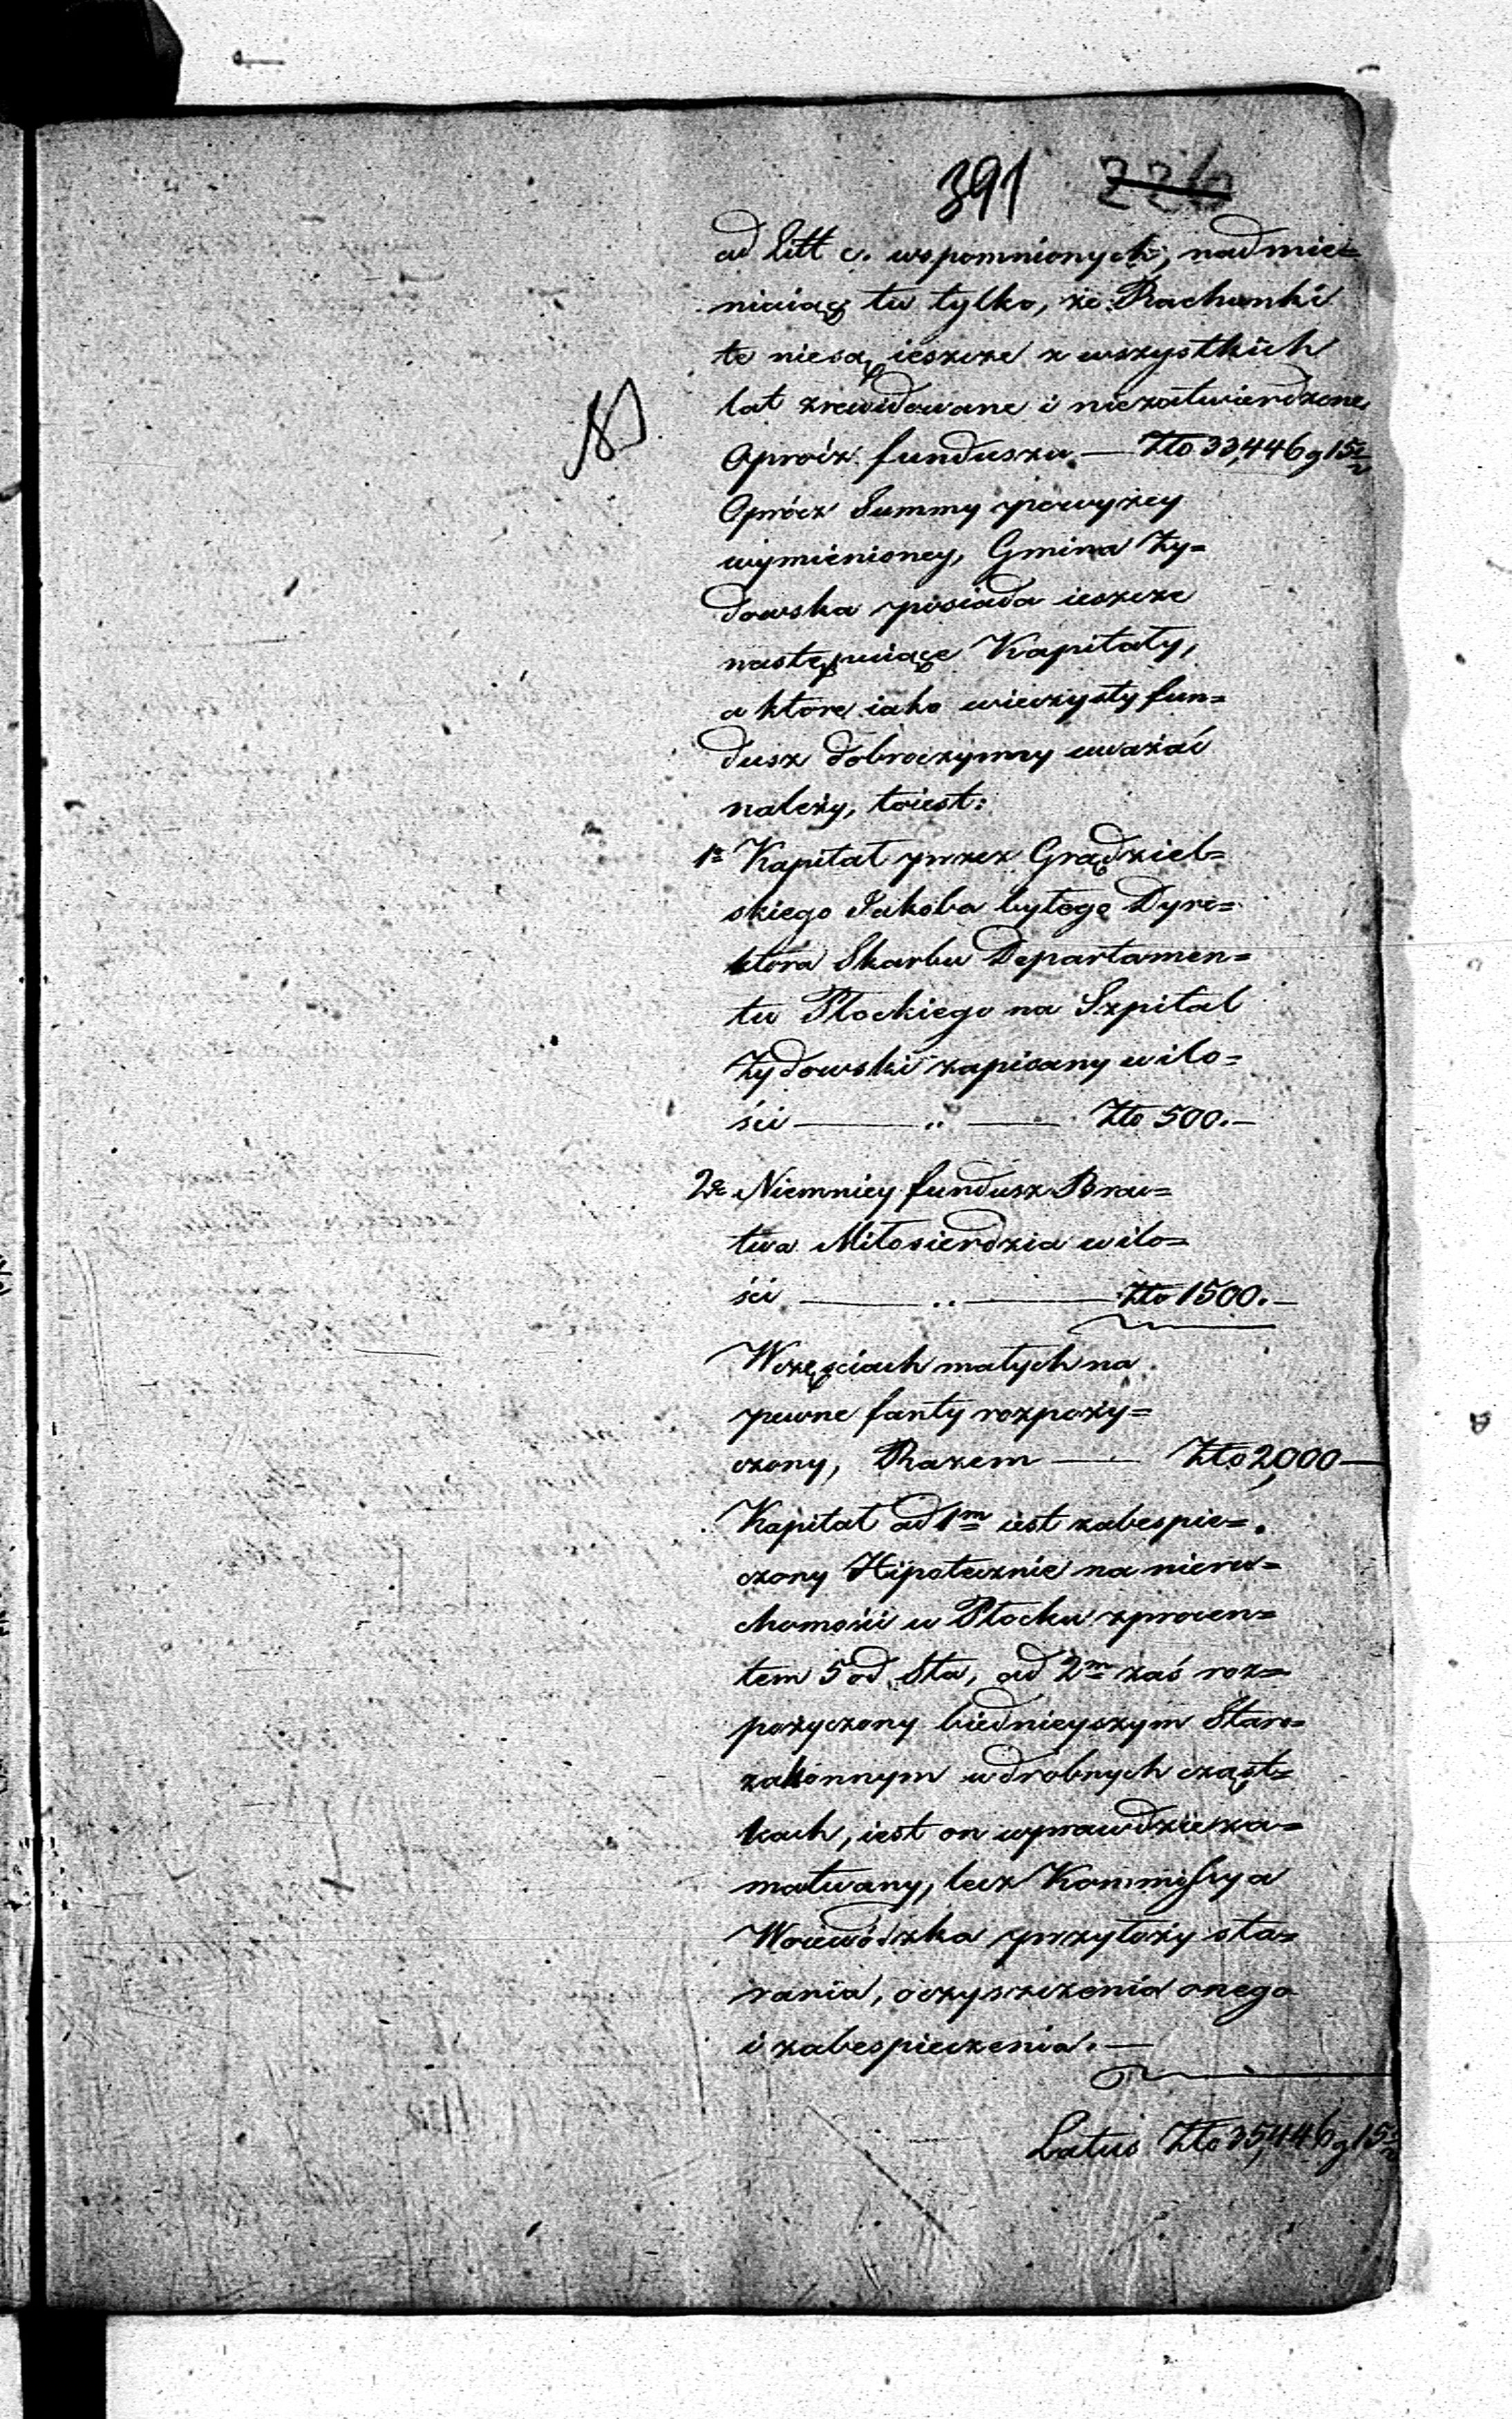 391 226
ad Litt c. wspomnionych, nadmie=
niaiąc tu tylko, że Rachunki
te niesą ieszcze z wszystkich
lat zrewidowane i niezatwierdzone
Oprócz funduszu — Złto 33,446 g 15
Oprócz Summy powyżey
wymienioney, Gmina Ży=
dowska posiada ieszcze
następuiące Kapitały,
a które iako wieczysty fun=
dusz dobroczynny uważać
należy, toiest:
1e Kapitał przez Grądziel=
skiego Jakóba byłego Dyre=
ktora Skarbu Departamen=
tu Płockiego na Szpital
Żydowski zapisany w ilo=
ści — " — Złto 500.—
2e Niemniey fundusz Brac=
twa Miłosierdzia w ilo=
ści — " — Złto 1500.—
W częściach małych na
pewne fanty rozpoży=
czony, Razem — Złto 2,000—
Kapitał ad 1m iest zabespie=
czony Hipotecznie na nieru=
chomości w Płocku z procen=
tem 5 od Sta, ad 2m zaś roz=
pożyczony biednieyszym Staro=
zakonnym w drobnych cząst=
kach, iest on wprawdzie za=
matwany, lecz Kommissya
Woiewódzka przyłoży sta=
rania, oczyszczenia onego
i zabespieczenia.—
Latus Złto 35,446 g 15